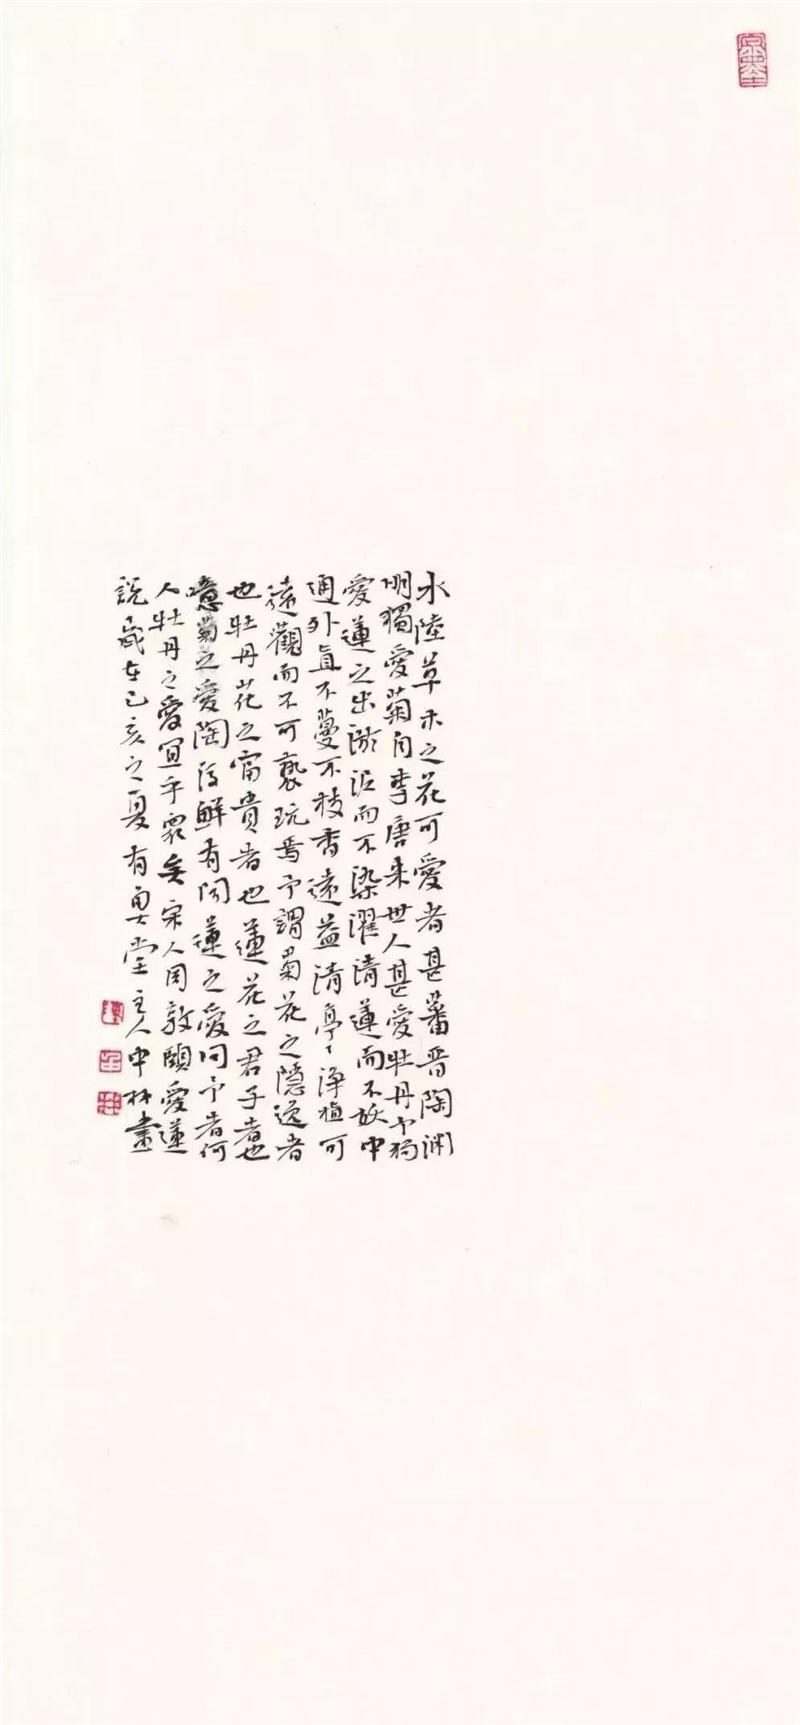 水陸草木之花可愛者甚蕃晋陶渊
明獨愛菊自李唐来世人甚愛牡丹予独
愛蓮之出淤泥而不染濯清蓮而不妖中
通外直不蔓不枝香遠益清亭〻净植可
遠觀而不可褻玩焉予謂菊花之隠逸者
也牡丹花之富貴者也蓮花之君子者也
噫菊之愛陶后鮮有闻蓮之愛同予者何
人牡丹之愛宜乎衆矣宋人周敦頤愛蓮
説歲在己亥之夏有
堂主人中林書